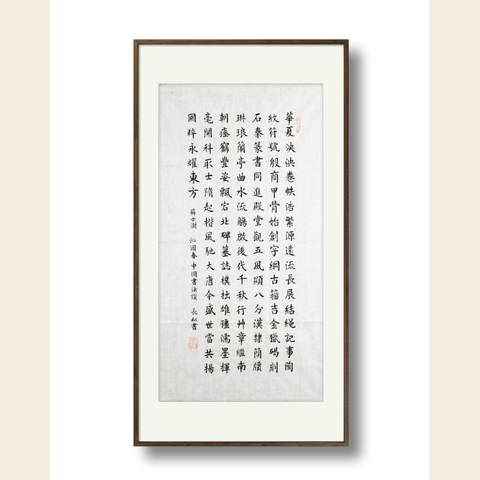 華夏泱泱卷帙浩繁源遠流長展結繩記事陶
紋符號殷商甲骨始創字網古籀吉金獵碣刻
石秦篆書同進殿堂觀五鳳顯八分漢隸簡牘
琳琅蘭亭曲水流觴啟後代千秋行艸章繼南
朝瘞鶴豐姿飄宕北碑墓誌樸拙雄強濡墨揮
毫開科取士隋起楷風馳大唐今盛世當共揚
國粹永耀東方 蘇士澍 沁園春 中國書法頌 長松書